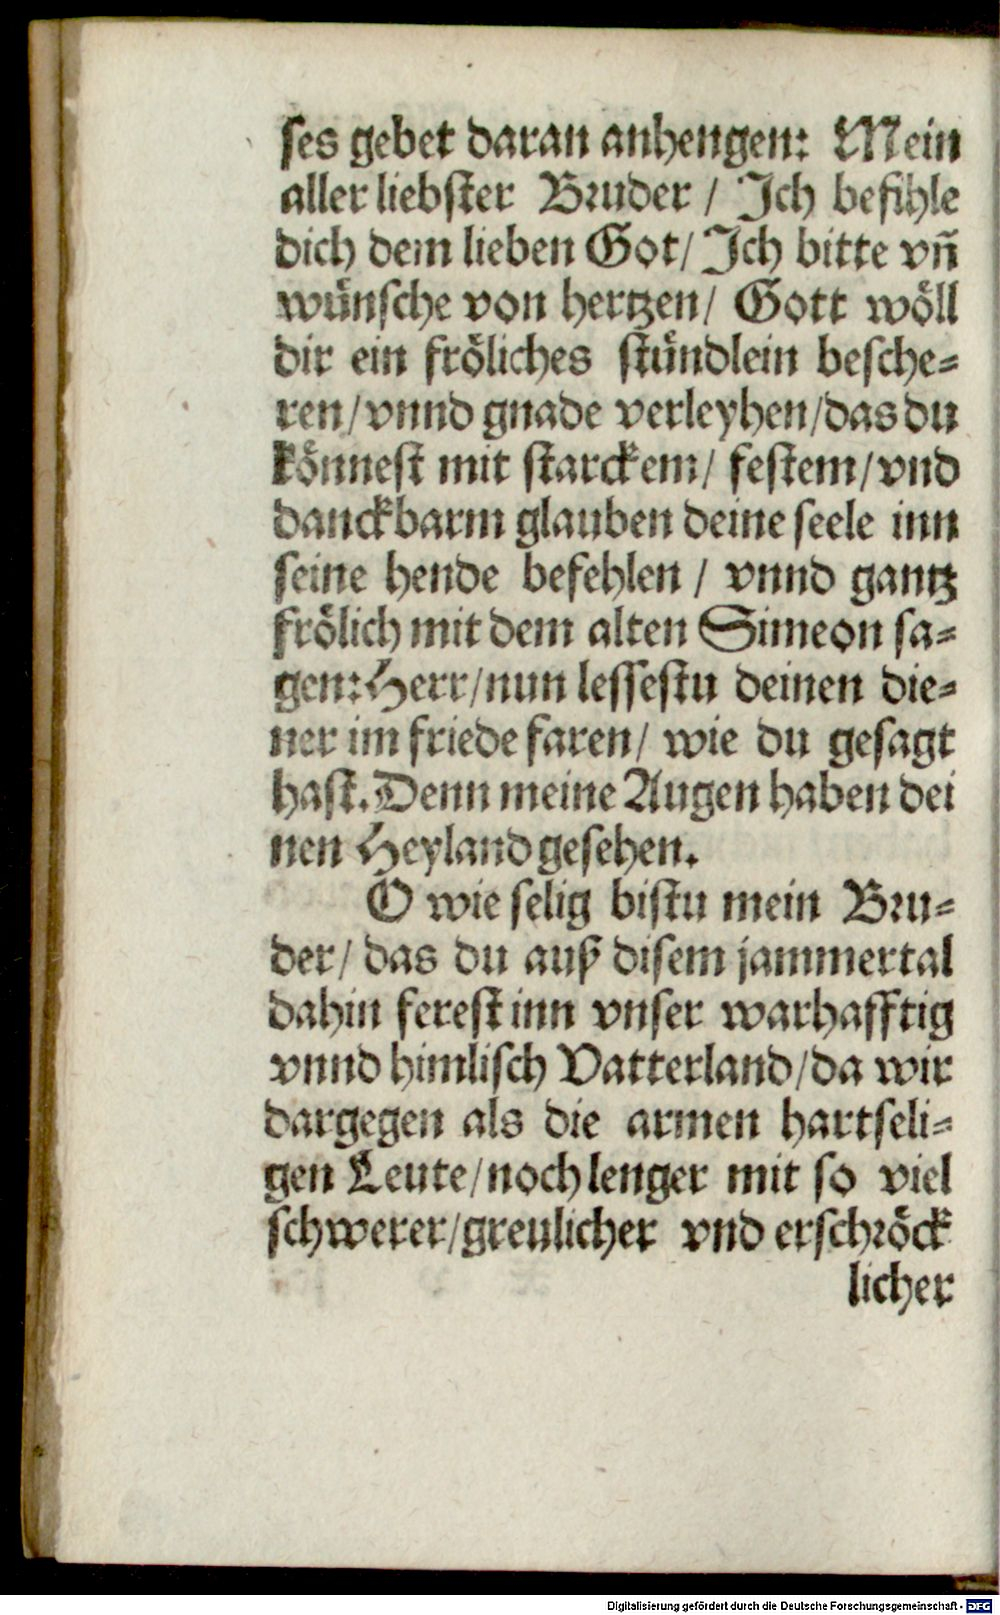 ses gebet daran anhengen: Mein
aller liebster Bruder / Ich befihle
dich dem lieben Got / Ich bitte vñ
wünsche von hertzen / Gott wöll
dir ein fröliches stündlein besche-
ren / vnnd gnade verleyhen / das du
könnest mit starckem / festem / vnd
danckbarm glauben deine seele inn
seine hende befehlen / vnnd gantz
frölich mit dem alten Simeon sa-
gen: Herr / nun lessestu deinen die-
ner im friede faren / wie du gesagt
hast. Denn meine Augen haben dei
nen Heyland gesehen.
O wie selig bistu mein Bru-
der / das du auß disem jammertal
dahin ferest inn vnser warhafftig
vnnd himlisch Vatterland / da wir
dargegen als die armen hartseli-
gen Leute / noch lenger mit so viel
schwerer / greulicher vnd erschröck
licher
Digitalisierung gefördert durch die Deutsche Forschungsgemeinschaft - DFG